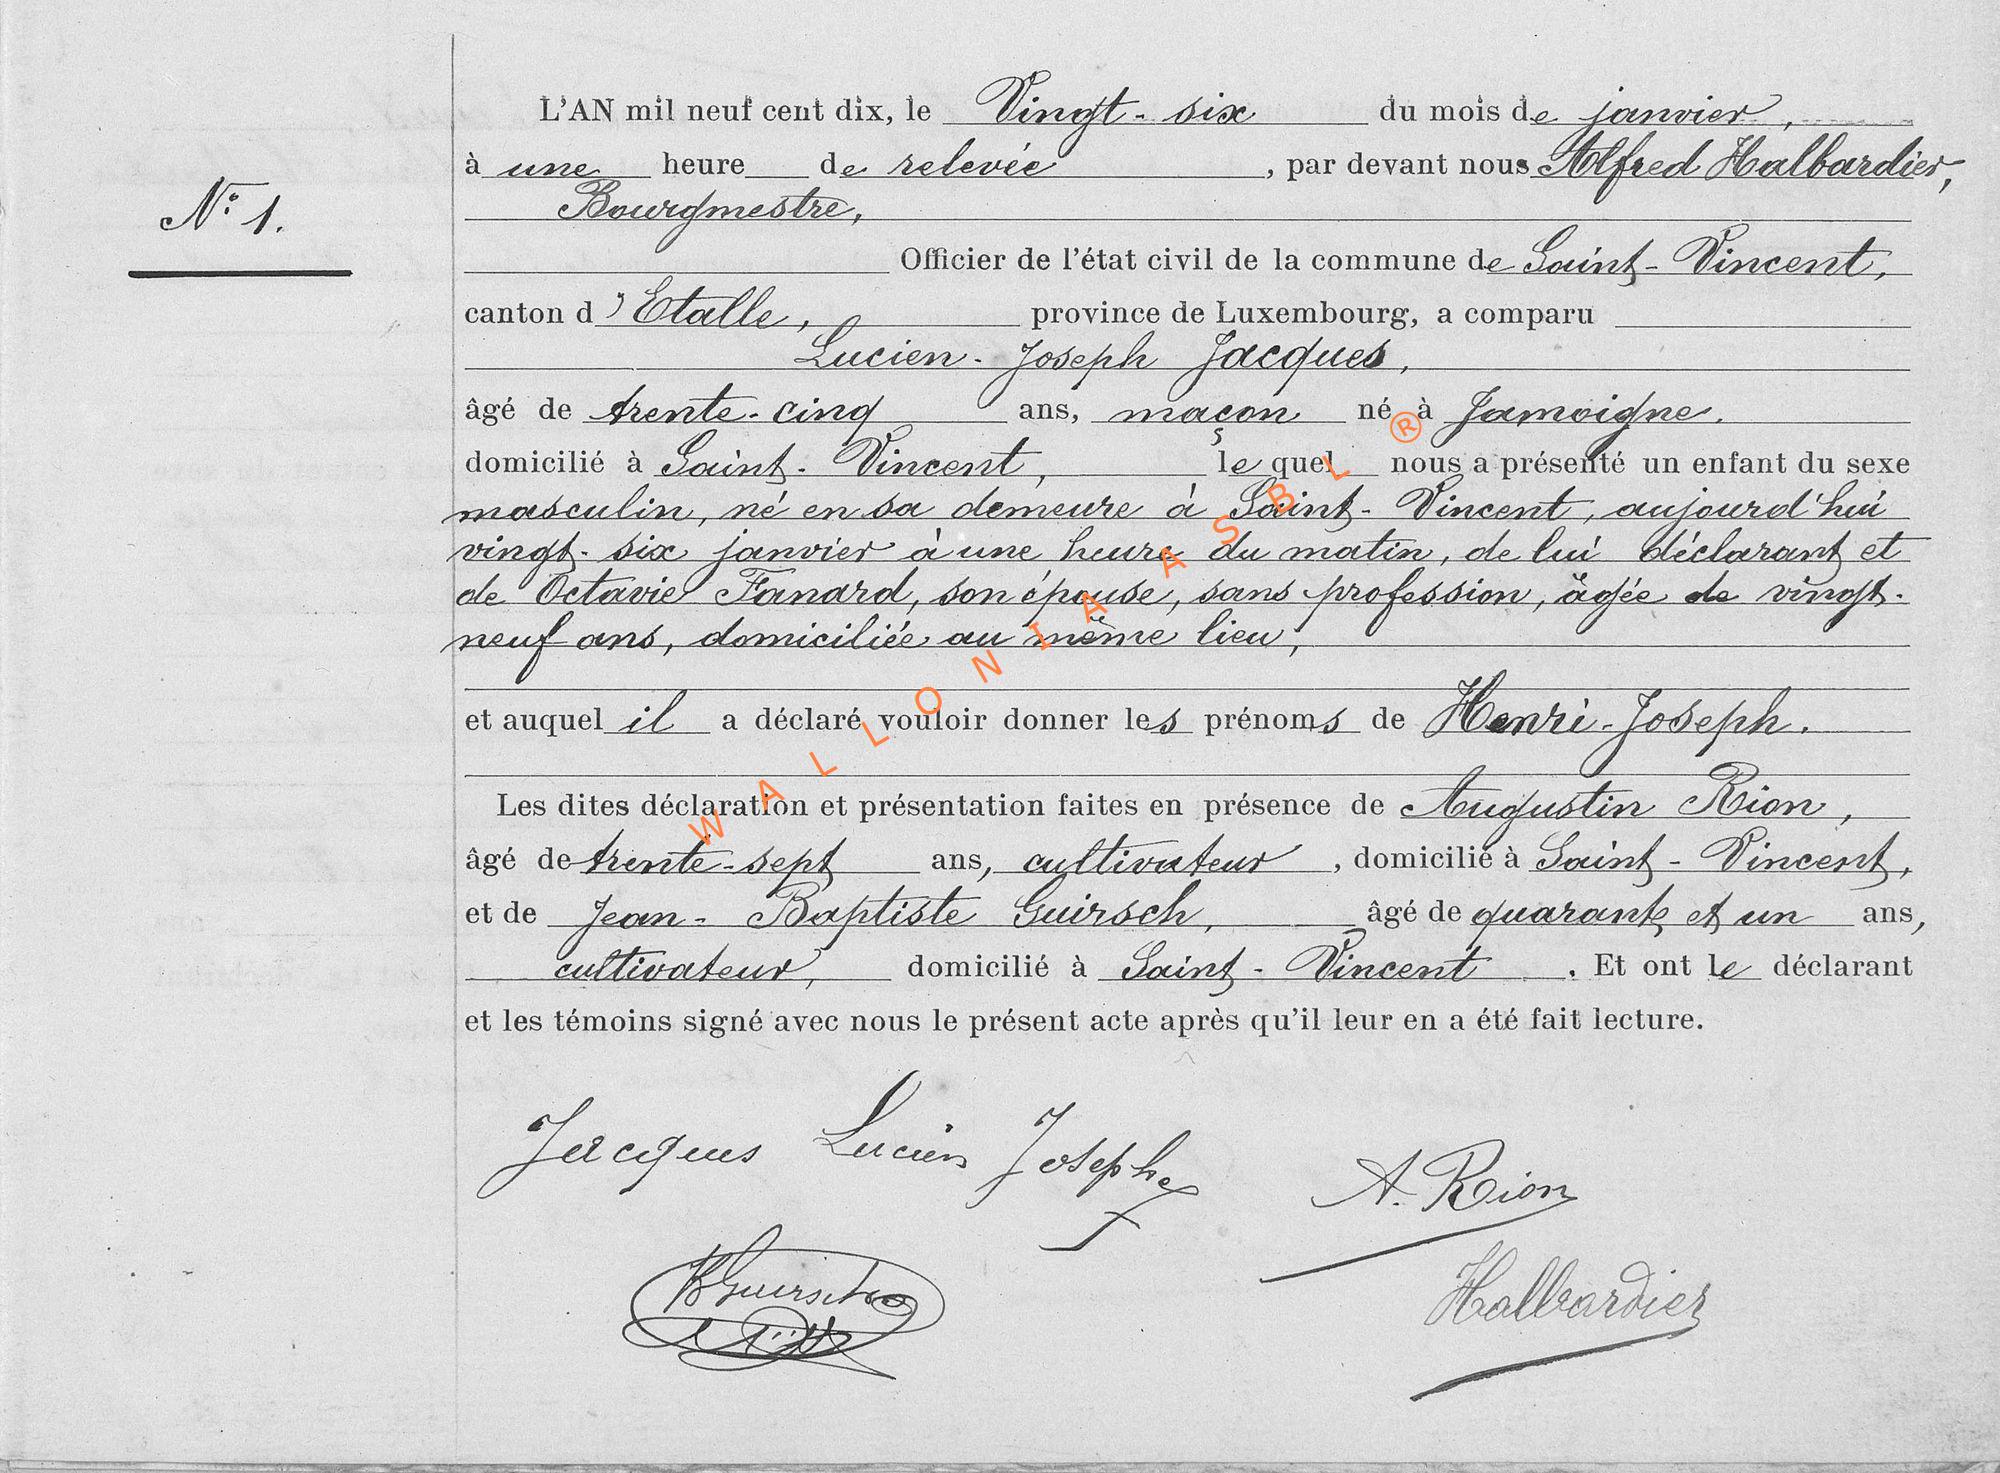 L'AN mil neuf cent dix, le Vingt-six du mois de janvier,
à une heure de relevée, par devant nous Alfred Halbardier,
N° 1.
Bourgmestre,
Officier de l'état civil de la commune de Saint-Vincent,
canton d'Etalle, province de Luxembourg, a comparu
Lucien-Joseph Jacques,
âgé de trente-cinq ans, maçon né à Jamoigne.
domicilié à Saint-Vincent, lequel nous a présenté un enfant du sexe
masculin, né en sa demeure à Saint-Vincent, aujourd'hui
vingt-six janvier à une heure du matin, de lui déclarant et
de Octavie Fanard, son épouse, sans profession, âgée de vingt-
neuf ans, domiciliée au même lieu,
et auquel il a déclaré vouloir donner les prénoms de Henri-Joseph.
Les dites déclaration et présentation faites en présence de Augustin Rion,
âgé de trente-sept ans, cultivateur, domicilié à Saint-Vincent,
et de Jean-Baptiste Guirsch, âgé de quarante et un ans,
cultivateur, domicilié à Saint-Vincent. Et ont le déclarant
et les témoins signé avec nous le présent acte après qu'il leur en a été fait lecture.
Jacques Lucien Joseph
A. Rion
Guirsch
Halbardier
WALLONIA ASBL ®